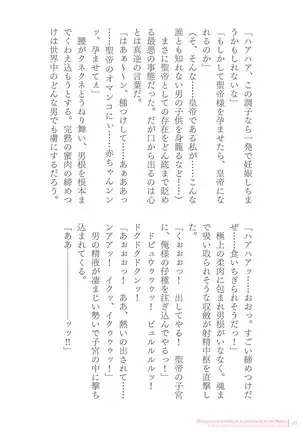 「ハアハア、この調子なら一発で妊娠しちま
うかもしれないな」
「もしかして聖帝様を孕ませたら、皇帝にな
れるのか」
(そ、そんな……皇帝である私が……こんな
誰とも知れない男の子供を身籠るなど……)
まさに聖帝としての存在を根底まで貶め
る最悪の事態だった。だが口から出るのは心
とは真逆の言葉だ。
「はあぁ〜〜ン、種つけして……あぁああっ
……聖帝のオマンコにぃ……赤ちゃんンン
ッ、孕ませてぇ」
腰がクネクネとうねり舞い、男根を根本ま
でくわえ込もうとする。完熟の蜜肉の締めつ
けは世界中のどんな男でも虜にするだろう。
「ハアハアッ……おおっ。すごい締めつけだ
ぜ……食いちぎられそうだっ!」
極上の柔肉に包まれ男根がいななく。魂ま
で吸い取られそうな収斂が射精中枢を直撃し
た。
「くおおおっ! 出してやる! 聖帝の子宮
に、俺様の仔種を注ぎ込んでやるっ!」
ドピュウウウゥッ! ビュルルルルッ!
ドクドクドクンッ!
「あぉおおっ! ああ、熱いの出されて……
ンアアッ! イクッ、イクゥゥゥッ!
男の精液が凄まじい勢いで子宮の中に撃ち
込まれてくる。
「ああ━━━━━ッッ!!」